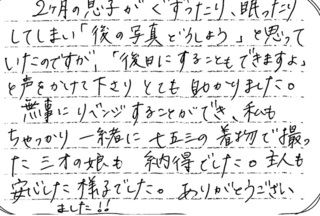 2ヶ月の息子がぐずったり、眠ったり
してしまい「後の写真どうしよう」と思って
いたのですが、「後日にすることもできますよ」
と声をかけて下さりとても助かりました。
無事にリベンジすることができ、私も
ちゃっかり一緒に七五三の着物で撮っ
た三才の娘も納得でした。主人も
安心した様子でした。ありがとうござい
ました!!